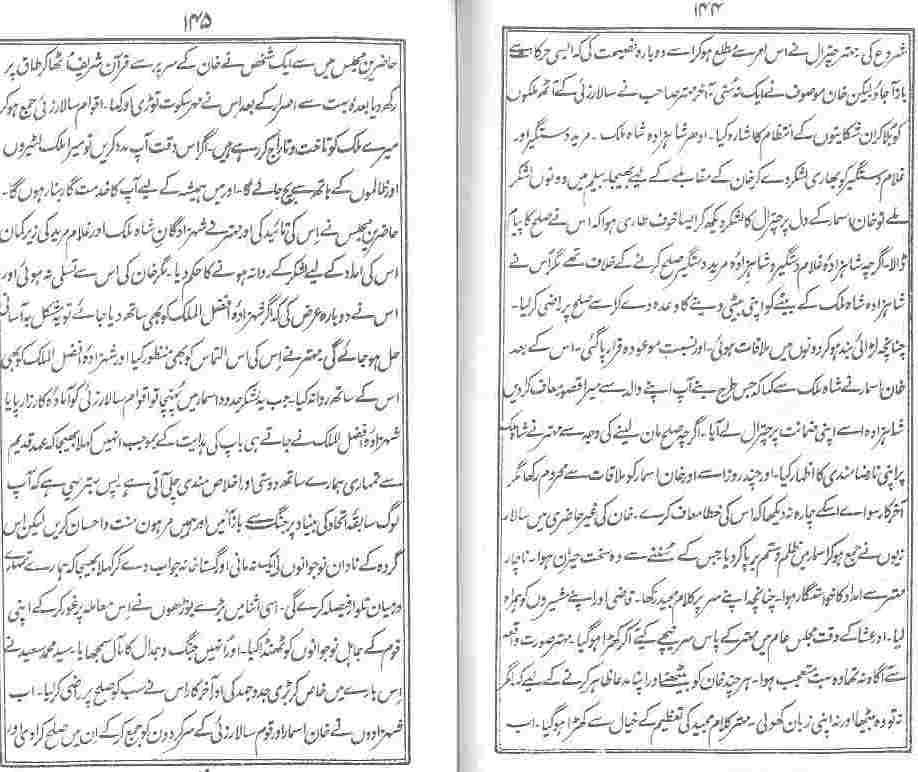 ۱۴۴
شروع کی۔ مہتر چترال نے اس امر سے مطلع ہوکر اسے دوبارہ نصیحت کی کہ ایسی حرکات سے
باز آجاؤ لیکن خان موصوف نے ایک نہ سُنی۔ آخر مہتر صاحب نے سالارزئی کے آٹھ ملکوں
کو بلا کر ان شکایتوں کے انتظام کا اشارہ کیا۔ اودھر شاہزادہ شاہ ملک۔ مرید دستگیر اور
غلام دستگیر کو بھاری لشکر دے کر خان کے مقابلے کے لیے بھیجا۔ بیلیم میں دونوں لشکر
ملے تو خان اسمار کے دل پر چترال کا لشکر دیکھ کر ایسا خوف طاری ہوا کہ اس نے صلح کا پیام
ڈالا۔ اگرچہ شاہزادہ غلام دستگیر و شاہزادہ مرید دستگیر صلح کرنے کے خلاف تھے مگر اُس نے
شاہزادہ شاہ ملک کے بیٹے کو اپنی بیٹی دینے کا وعدہ دے کر اسے صلح پر راضی کر لیا۔
چنانچہ لڑائی بند ہو کر دونوں میں ملاقات ہوئی۔ اور نسبت موعودہ قرار پا گئی۔ اس کے بعد
خان اسمار نے شاہ ملک سے کہا کہ جس طرح بنے آپ اپنے والد سے میرا قصور معاف کرا دیں
شاہزادہ اسے اپنی ضمانت پر چترال لے آیا۔ اگرچہ صلح مان لینے کی وجہ سے مہتر نے شاہ ملک
پر اپنی نارضامندی کا اظہار کیا۔ اور چند روز اسے اور خان اسمار کو ملاقات سے محروم رکھا مگر
آخر کار سوائے اسکے چارہ نہ دیکھا کہ اس کی خطا معاف کرے۔ خان کی غیر حاضری میں سالار
زیوں نے جمع ہو کر اسمار میں ظلم و ستم برپا کر دیا جس کے سُننے سے وہ سخت حیران ہوا۔ ناچار
مہتر سے امداد کا خواستگار ہوا۔ چنانچہ اپنے سر پر کلام مجید رکھا۔ قاضی اور اپنے مشیروں کو ہمراہ
لیا۔ اور عشا کے وقت مجلس عام میں مہتر کے پاس سر نیچے کیئے آ کر کھڑا ہو گیا۔ مہتر صورت واقعہ
سے آگاہ نہ تھا وہ بہت متعجب ہوا۔ ہر چند خان کو بیٹھنے اور اپنا مدعا ظاہر کرنے کے لیے کہا۔ مگر
نہ تو وہ بیٹھا اور نہ اپنی زبان کھولی۔ مہتر کلام مجید کی تعظیم کے خیال سے کھڑا ہو گیا۔ اب
۱۴۵
حاضرین مجلس میں سے ایک شخص نے خان کے سر پر سے قرآن شریف اُٹھا کر طاق پر
رکھ دیا بعدہٗ بہت سے اصرار کے بعد اس نے مہر سکوت توڑی اور کہا۔ اقوام سالارزئی جمع ہو کر
میرے ملک کو تاخت و تاراج کر رہے ہیں۔ اگر اس وقت آپ مدد کریں تو میرا ملک لٹیروں
اور ظالموں کے ہاتھ سے بچ جائے گا۔ اور میں ہمیشہ کے لیے آپ کا خدمت گار بنا رہوں گا۔
حاضرین مجلس نے اِس کی تائید کی اور مہتر نے شہزادگان شاہ ملک اور غلام مرید کی زیر کمان
اس کی امداد کے لیے لشکر کے روانہ ہونے کا حکم دیا۔ مگر خان کی اس سے تسلی نہ ہوئی اور
اس نے دوبارہ عرض کی کہ اگر شہزادہ افضل الملک کو بھی ساتھ دیا جائے تو یہ مشکل بہ آسانی
حل ہو جائے گی۔ مہتر نے اِس کی اس التماس کو بھی منظور کیا اور شہزادہ افضل الملک کو بھی
اس کے ساتھ روانہ کیا۔ جب یہ لشکر حدود اسمار میں پہنچا تو اقوام سالارزئی کو آمادہ کارزار پایا
شہزادہ افضل الملک نے جاتے ہی باپ کی ہدایت کے بموجب انہیں کہلا بھیجا کہ عہد قدیم
سے تمہاری ہمارے ساتھ دوستی اور اخلاص مندی چلی آتی ہے پس بہتر یہی ہے کہ آپ
لوگ سابقہ اتحاد کی بنیاد پر جنگ سے باز آئیں اور ہمیں مرہون منت و احسان کریں لیکن اس
گروہ کے نادان نوجوانوں نے ایک نہ مانی اور گستاخانہ جواب دے کر کہلا بھیجا کہ ہمارے تمہارے
درمیان تلوار فیصلہ کرے گی۔ اسی اثنا میں بڑے بوڑھوں نے اِس معاملہ پر غور کر کے اپنی
قوم کے جاہل نوجوانوں کو ٹھنڈا کیا۔ اور انہیں جنگ و جدال کا مآل سمجھایا۔ سید محمد سعید نے
اِس بارے میں خاص کر بڑی جدوجہد کی اور آخر کار اُس نے سب کو صلح پر راضی کر لیا۔ اب
شہزادوں نے خان اسمار اور قوم سالارزئی کے سرکردوں کو جمع کر کے اِن میں صلح کرا دی اور